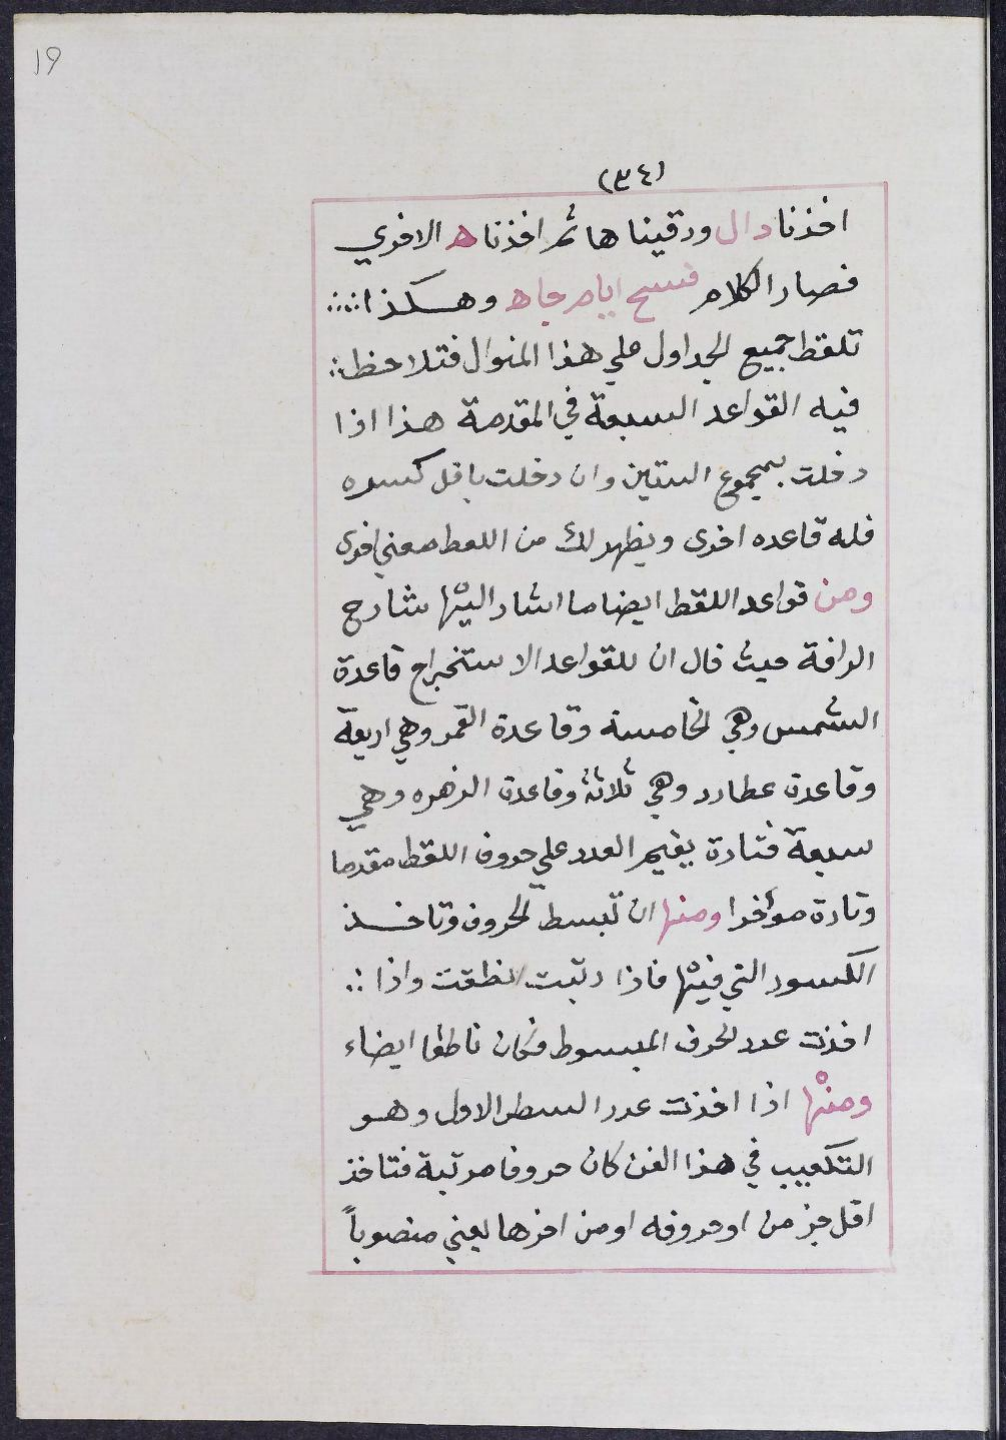 19
(٣٤)
اخذنا دال ورقيناها ثم اخذنا هـ الاخري
فصار الكلام فسح ايام جاه وهكذا ∴
تلقط جميع الجداول علي هذا المنوال فتلاحظ ∴
فيه القواعد السبعة في المقدمة هذا اذا
دخلت بمجموع الستين وان دخلت باقل كسره
فله قاعده اخرى ويظهر لك من اللقط معني اخرى
ومن قواعد اللقط ايضا ما اشار اليها شارح
الرافة حيث قال ان للقواعد الاستخراج قاعدة
الشمس وهي لخامسة وقاعدة القمر وهي اربعة
وقاعدة عطارد وهي ثلاثة وقاعدة الزهره وهي
سبعة فتارة يقيم العدد علي حروف اللقط مقدما
وتارة موأخرا ومنها ان تبسط لحروف وتاخذ
الكسور التي فيها فاذا رتبت نطقت واذا ∴
اخذت عدد لحرف المبسوط فكان ناطقا ايضاء
ومنها اذا اخذت عدد السطر الاول وهو
التكعيب في هذا الفن كان حروفا مرتبة فتاخذ
اقل جز من او حروفه او من اخرها يعني منصوباً